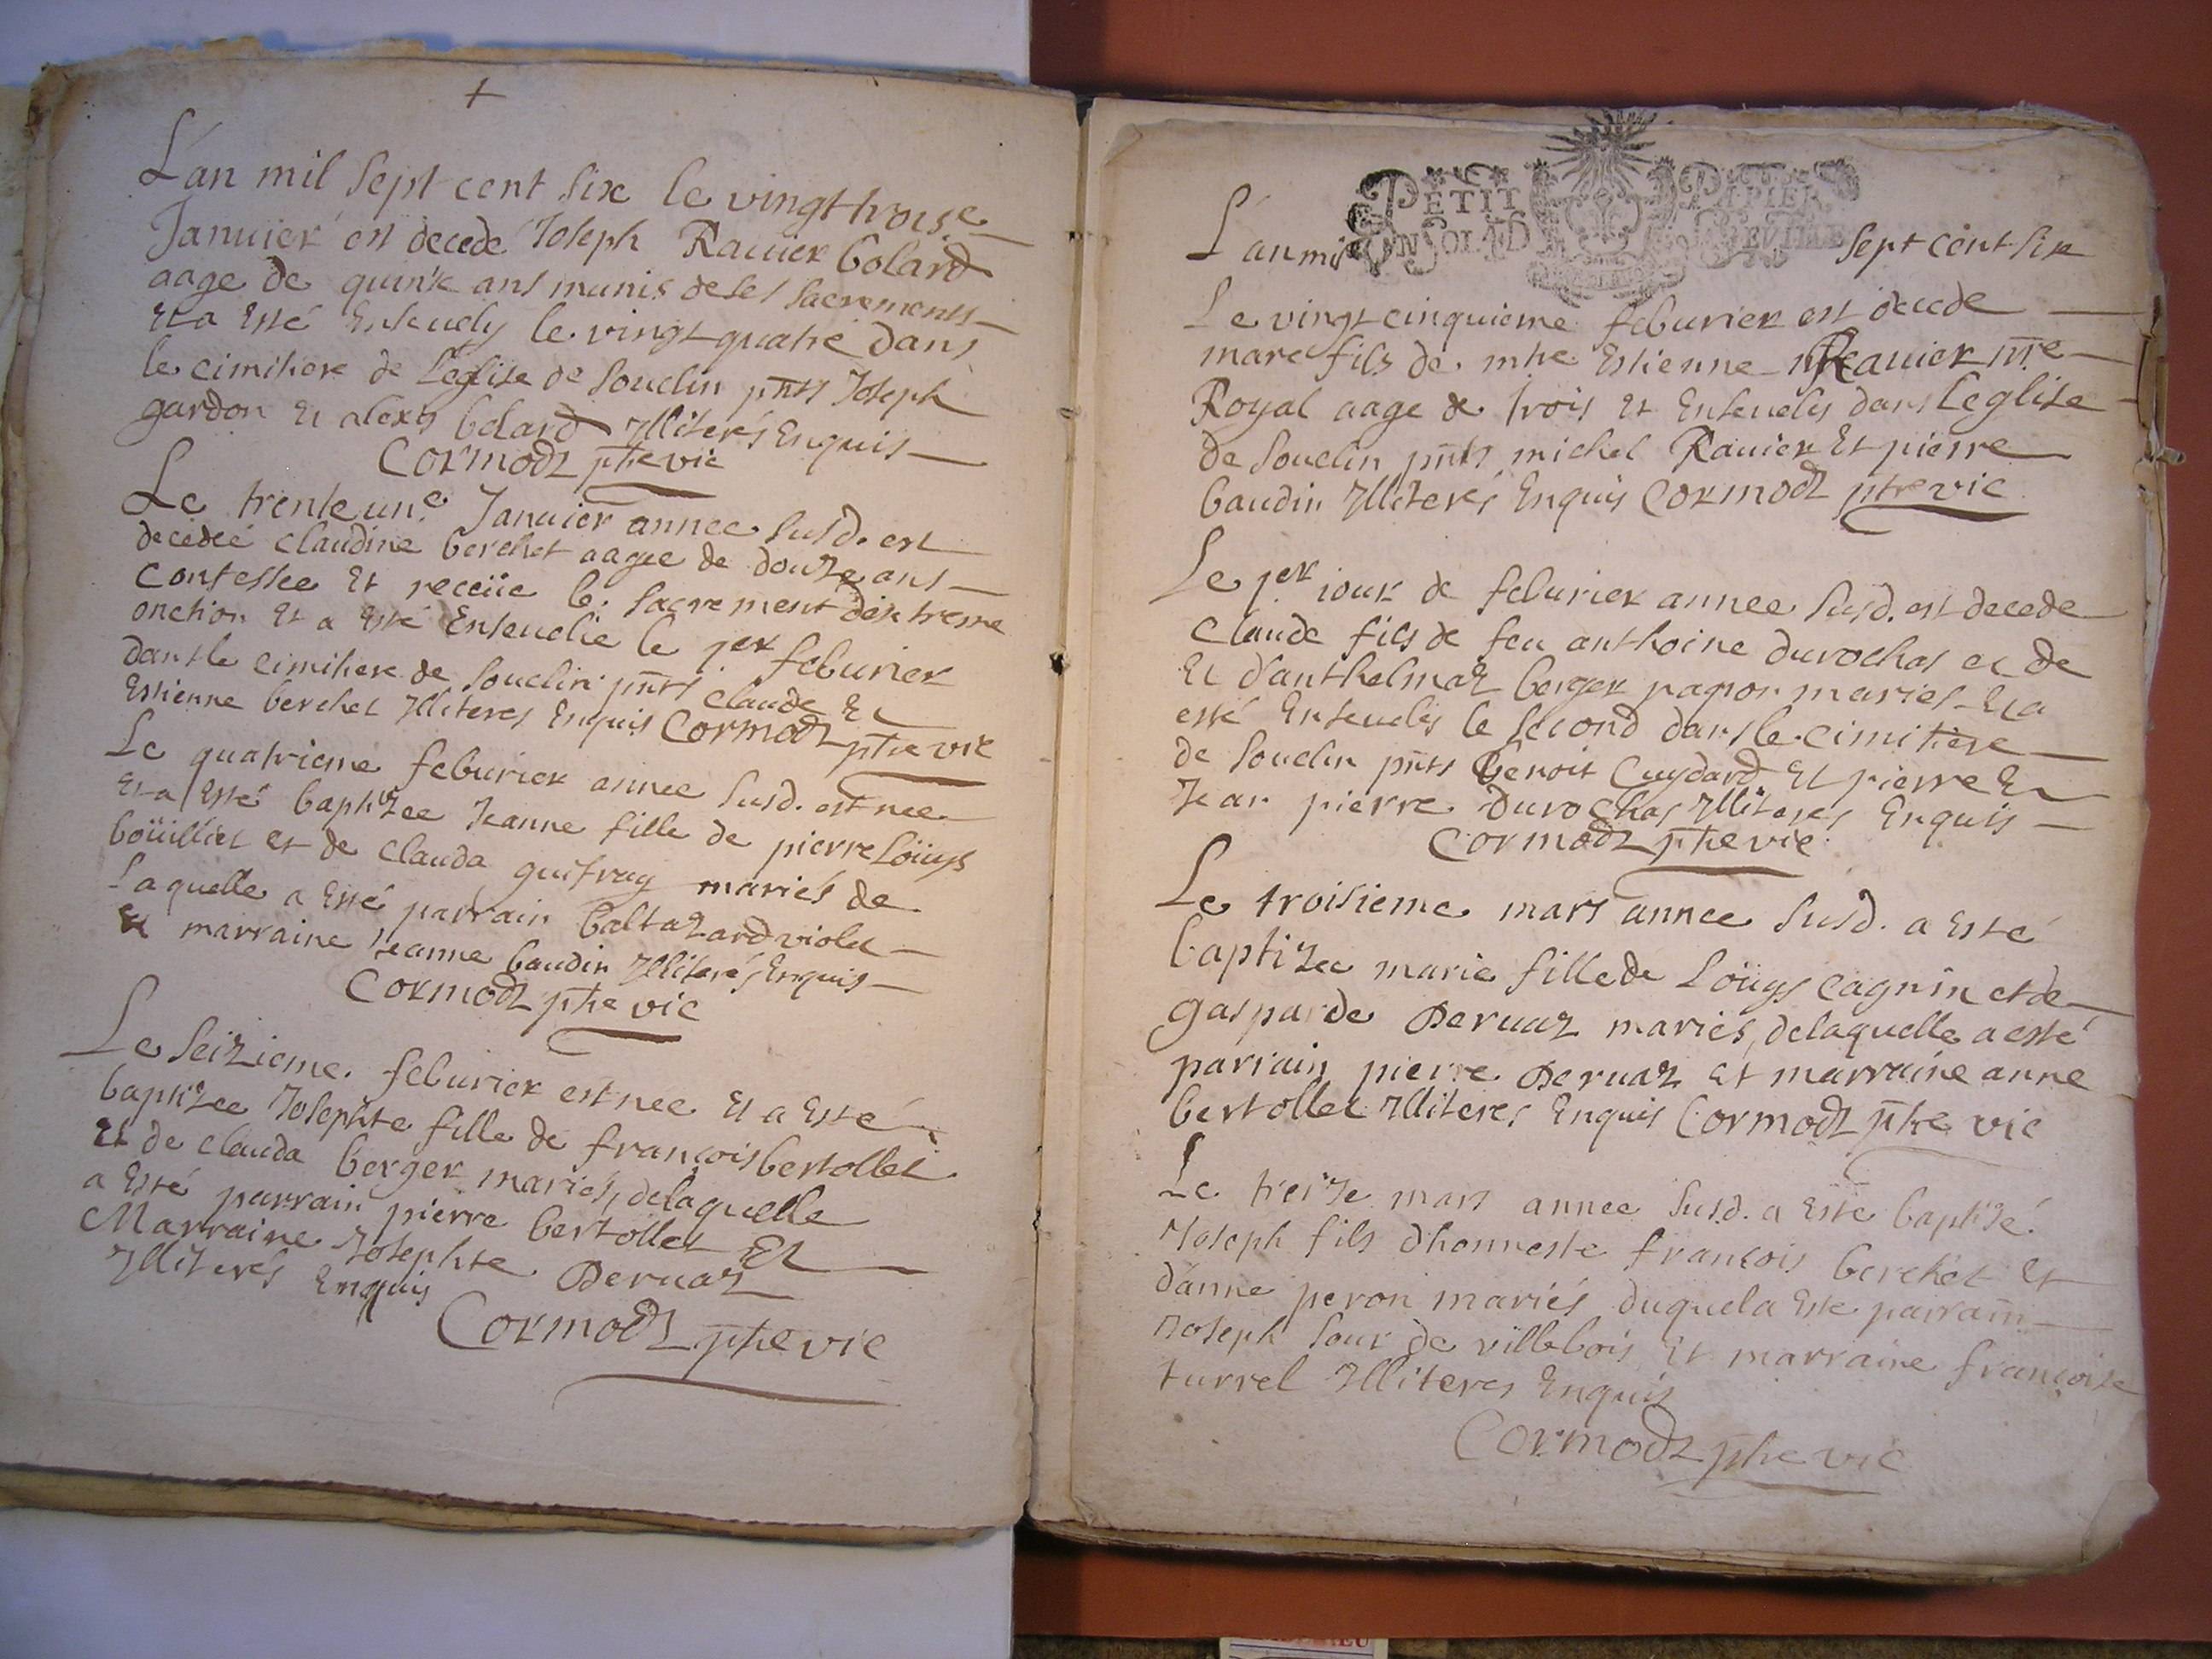 +
L'an mil sept cent six le vingt troise
Januier est decedé Joseph Rauier bolard
aage de quinse ans munis de ses sacrements
Et a Esté Enseuely le vingt quatre dans
le cimitiere de L'eglise de Souclin pnts Joseph
gardon Et alexis bolard Illiterés Enquis
Cormodz ptre vic
Le trente un.e Januier annee susd. est
decedeé claudine berchet aagee de douze ans
confessee Et receüe le sacrement d'extreme
onction Et a Esté Enseuelie le 1.er feburier
dans le cimitiere de Souclin pnts claude Et
Estienne berchet Illiteres Enquis Cormodz ptre vic
Le quatrieme feburier annee susd. est nee
Et a Esté baptizee Jeanne fille de pierre Loüys
boüilliet et de clauda guifray mariés de
Laquelle a Esté parrain baltazard violet
Et marraine Jeanne baudin Illiterés Enquis
Cormodz ptre vic
Le seizieme feburier est nee Et a Esté
baptizee Josephte fille de françois bertollet
Et de clauda berger mariés, de laquelle
a Esté parrain pierre bertollet Et
Marraine Josephte Deruaz
Illiterés Enquis
Cormodz ptre vic
PETIT PAPIER
UN SOL LA FEUILLE
L'an mil sept cent six
Le vingt cinquieme feburier est decede
marc fils de mtre Estienne Rauier nre
Royal aage de trois Et Enseuelis dans Leglise
de Souclin pnts michel Rauier Et pierre
baudin Illiterés Enquis Cormodz ptre vic
Le 1.er iour de feburier annee susd. est decede
claude fils de feu anthoine durochas et de
Et d'anthelmaz berger papon mariés Et a
esté Enseuelis le second dans le cimitiere
de Souclin pnts benoit Cuydard Et pierre Et
Jean pierre durochas Illiteres Enquis
Cormodz ptre vic
Le troisieme mars annee susd. a Esté
baptizee marie fille de Loüys cagnin et de
gasparde Deruaz mariés, de laquelle a esté
parrain pierre Deruaz Et marraine anne
bertollet Illiteres Enquis Cormodz ptre vic
Le treize mars annee susd. a Esté baptizé
Joseph fils d'honneste françois berchet Et
d'anne peron mariés duquel a Esté parrain
Joseph Sour de villebois Et marraine françoise
turrel Illiteres Enquis
Cormodz ptre vic